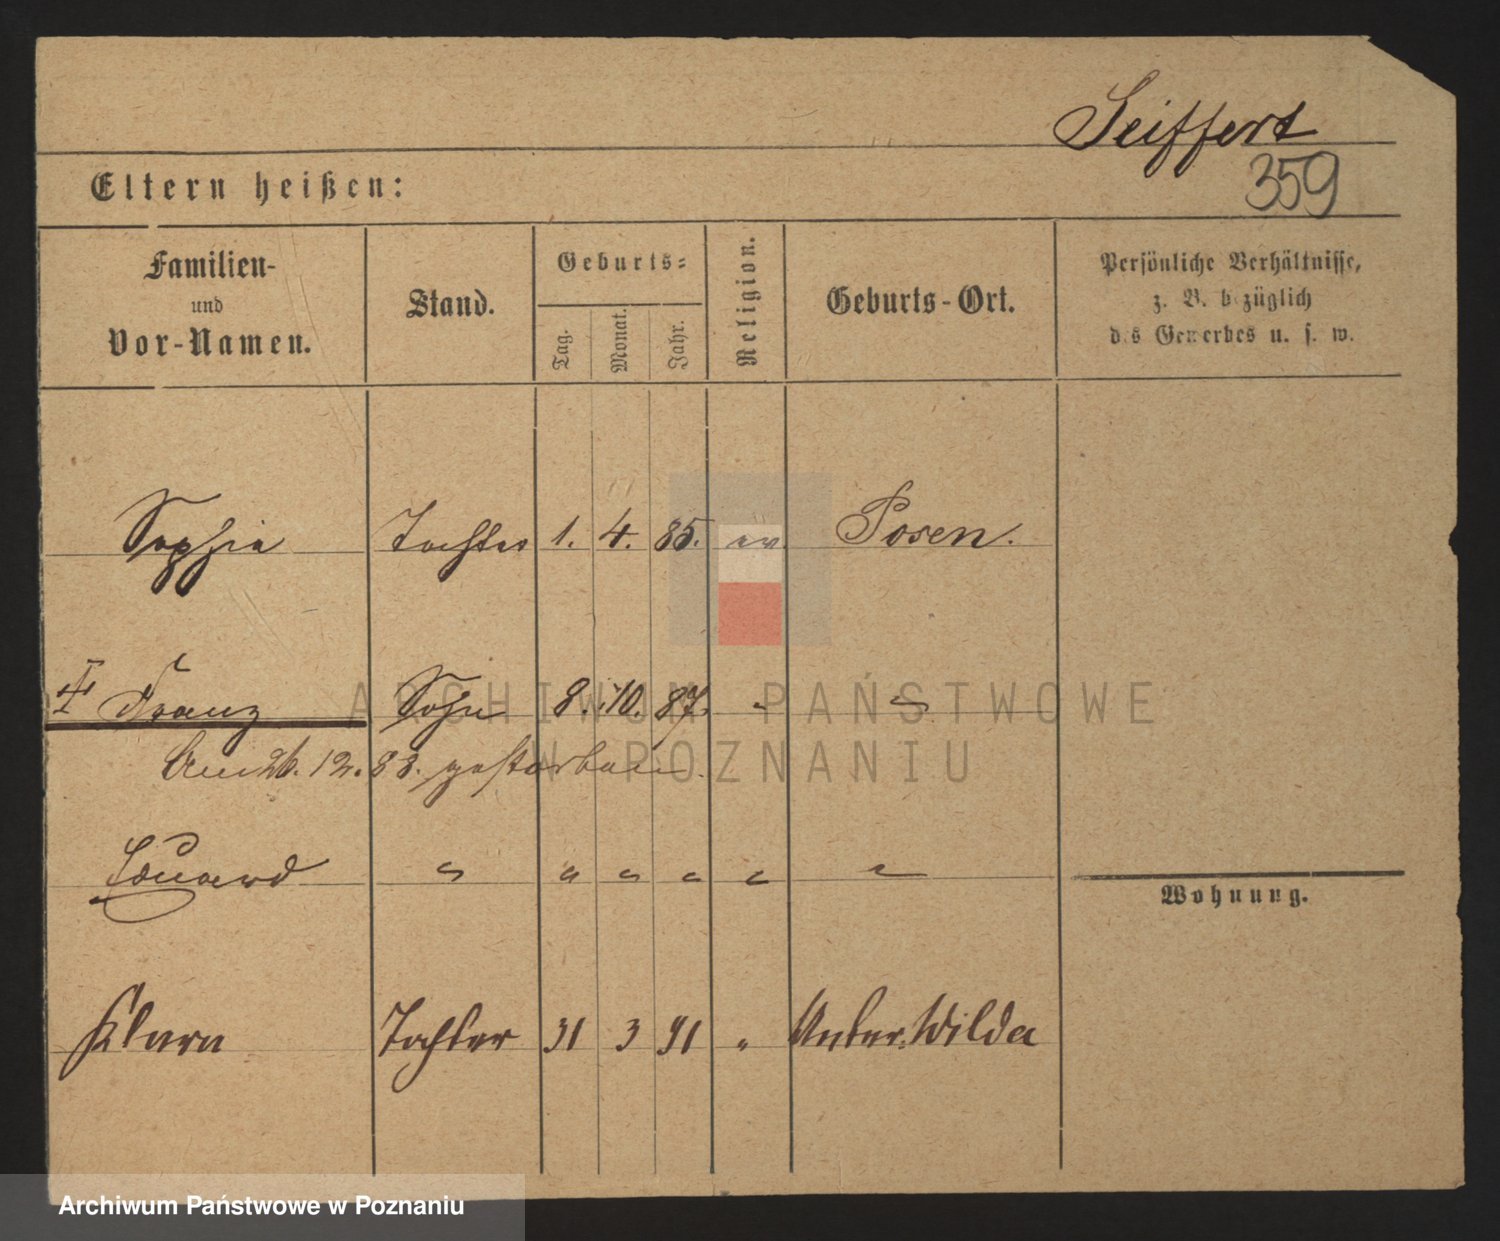 Seiffert
359
Eltern heißen:
Familien-
und
Vor-Namen.
Stand.
Geburts-
Tag.
Monat.
Jahr.
Religion.
Geburts-Ort.
Persönliche Verhältnisse,
z. B. bezüglich
des Gewerbes u. s. w.
Sophie Tochter 1. 4. 85. ev. Posen.
Franz Sohn 8. 10. 87. " "
Am 26. 12. 88. gestorben.
Eduard " " " " " "
Wohnung.
Klara Tochter 31 3 91 " Unter-Wilda
ARCHIWUM PAŃSTWOWE
W POZNANIU
Archiwum Państwowe w Poznaniu